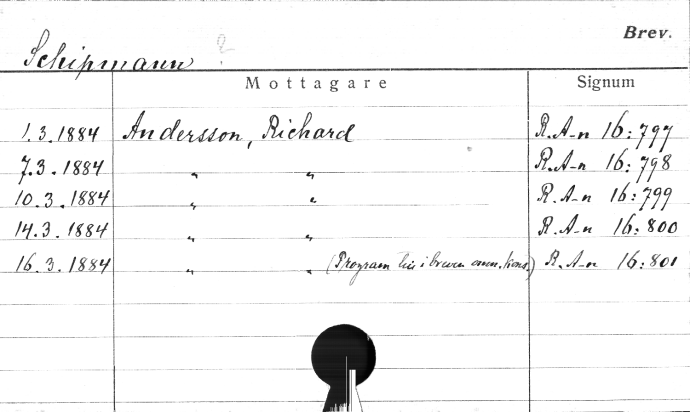 Brev.
Schipmann ?
Mottagare Signum
1.3.1884 Andersson, Richard R.A-n 16:797
7.3.1884 " " R.A-n 16:798
10.3.1884 " " R.A-n 16:799
14.3.1884 " " R.A-n 16:800
16.3.1884 " " (Program i breven kons.) R.A-n 16:801